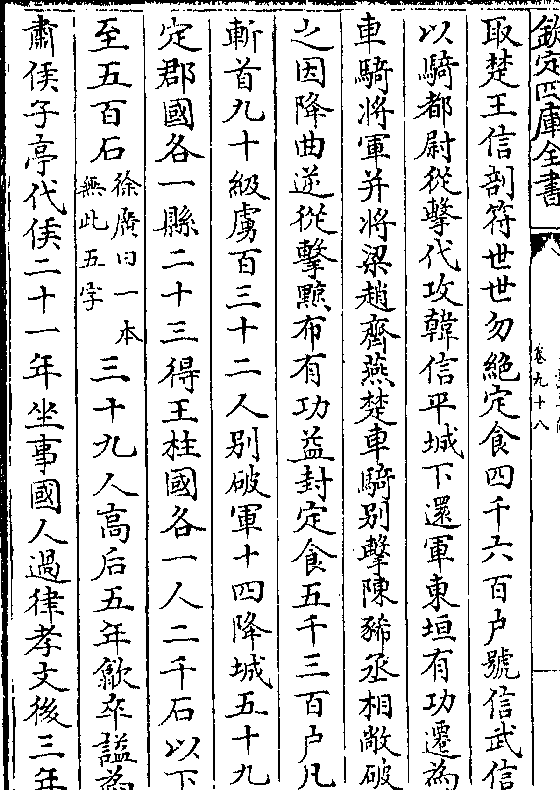 欽定四庫全書
卷九十八
取楚王信剖符世世勿絶定食四千六百户號信武侯
以騎都尉從擊代攻韓信平城下還軍東垣有功遷為
車騎將軍并將梁趙齊燕楚車騎别擊陳豨丞相敞破
之因降曲逆從擊黥布有功益封定食五千三百户凡
斬首九十級虜百三十二人别破軍十四降城五十九
定郡國各一縣二十三得王柱國各一人二千石以下
至五百石徐廣曰一本無此五字三十九人高后五年歙卒諡為
肅侯子亭代侯二十一年坐事國人過律孝文後三年